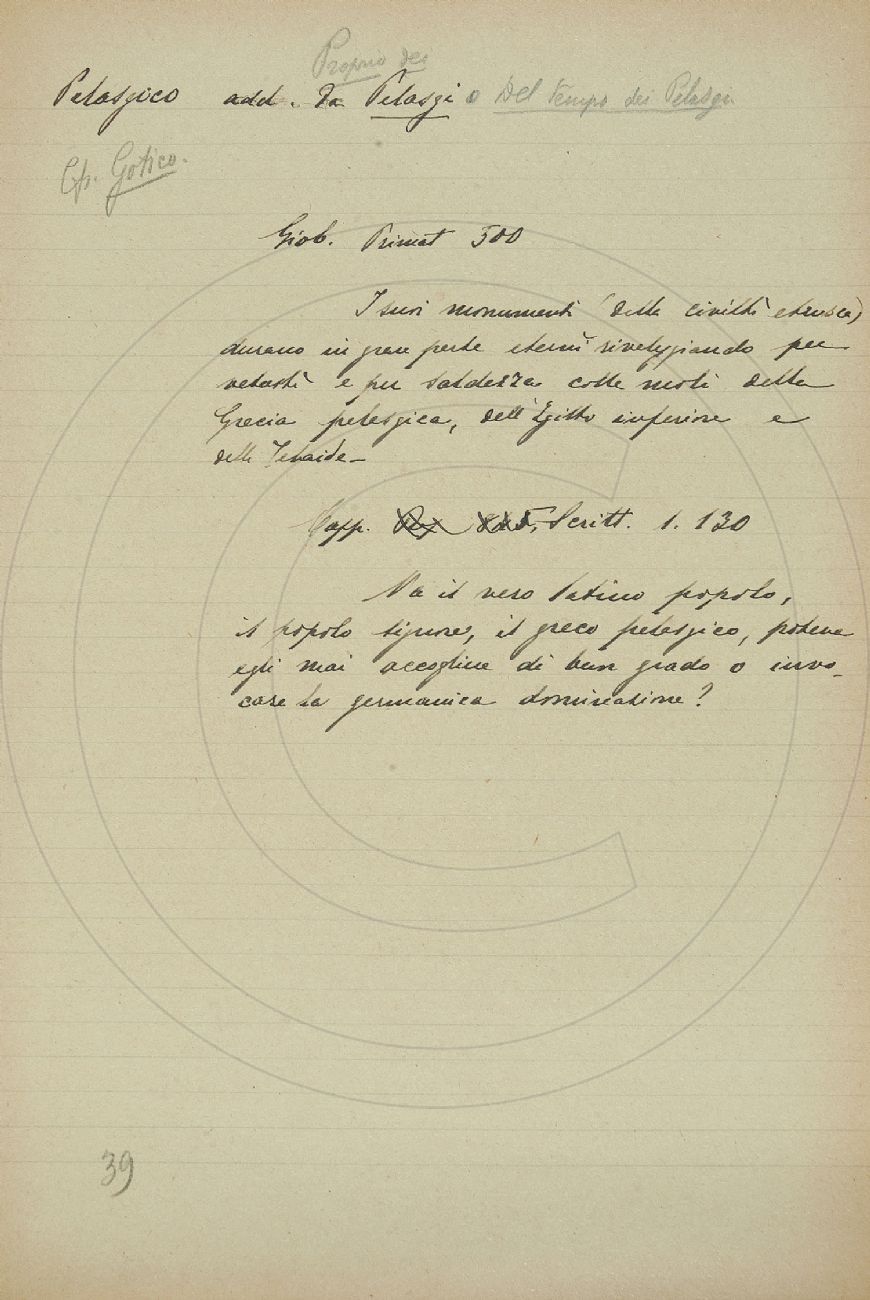 Proprio dei
Pelasgico add. Da Pelasgi o Del tempo dei Pelasgi
Cfr. Gotico.
Giob. Primat 500
I suoi monumenti (della civiltà etrusca)
durano in gran parte eterni rivaleggiando per
vetustà e per saldezza colle moli della
Grecia pelasgica, dell'Egitto inferiore e
della Tebaide—
Capp. Scritt. 1. 130
Ma il vero latino popolo,
il popolo signore, il greco pelasgico, poteva
egli mai accogliere di buon grado o invo-
care la germanica dominazione?
39